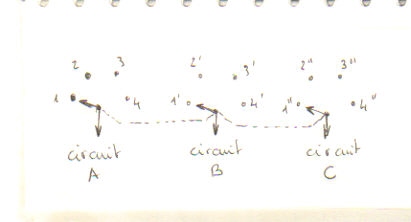 2 3 2' 3' 2" 3"
1 4 1' 4' 1" 4"
circuit circuit circuit
A B C